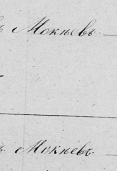 Мокѣевъ
Мокѣевъ